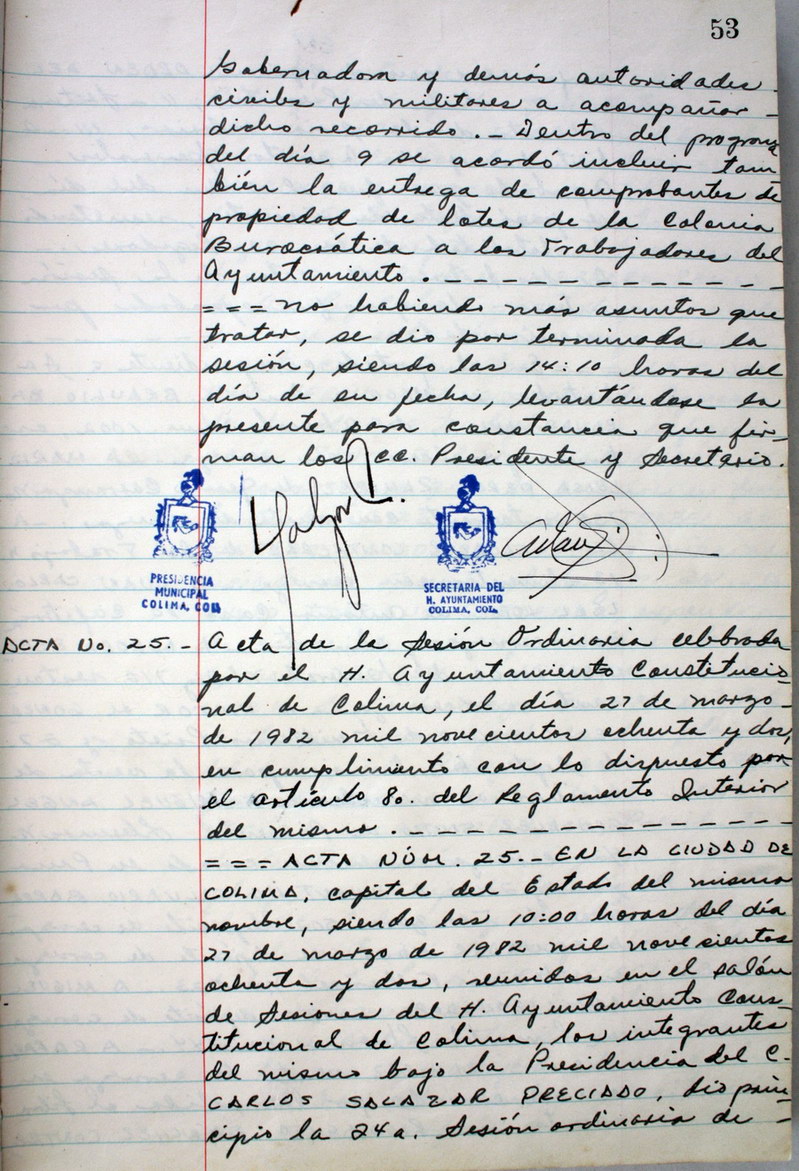 53
Gobernadora y demás autoridades -
civiles y militares a acompañar -
dicho recorrido. - Dentro del programa
del día 9 se acordó incluir tam-
bién la entrega de comprobantes de
propiedad de lotes de la Colonia
Burocrática a los Trabajadores del
Ayuntamiento. - - - - - - - - - - -
= = = no habiendo más asuntos que
tratar, se dio por terminada la
sesión, siendo las 14:10 horas del
día de su fecha, levantándose la
presente para constancia que fir-
man los CC. Presidente y Secretario.
PRESIDENCIA
MUNICIPAL
COLIMA, COL.
SECRETARIA DEL
H. AYUNTAMIENTO
COLIMA, COL.
ACTA No. 25. - Acta de la Sesión Ordinaria celebrada
por el H. Ayuntamiento Constitucio
nal de Colima, el día 27 de marzo -
de 1982 mil novecientos ochenta y dos,
en cumplimiento con lo dispuesto por
el artículo 8o. del Reglamento Interior
del mismo. - - - - - - - - - - - -
= = = ACTA NÚM. 25. - EN LA CIUDAD DE
COLIMA, capital del Estado del mismo
nombre, siendo las 10:00 horas del día
27 de marzo de 1982 mil novecientos
ochenta y dos, reunidos en el salón
de Sesiones del H. Ayuntamiento Cons-
titucional de Colima, los integrantes
del mismo bajo la Presidencia del C.
CARLOS SALAZAR PRECIADO, dio prin-
cipio la 24a. Sesión ordinaria de -